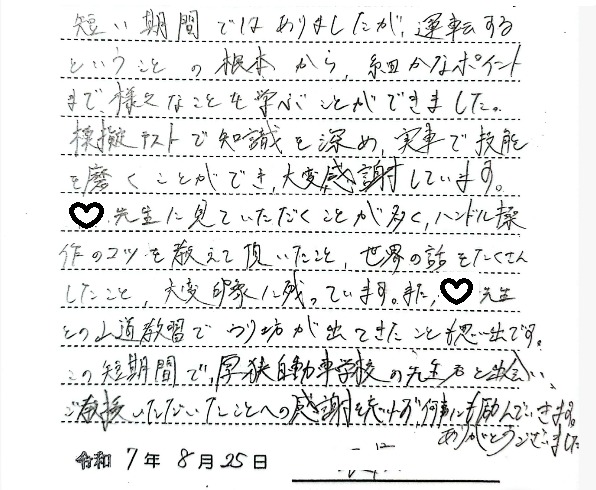 短い期間ではありましたが、運転する
ということの根本から、細かなポイント
まで様々なことを学ぶことができました。
模擬テストで知識を深め、実車で技能
を磨くことができ、大変感謝しています。
先生に見ていただくことが多く、ハンドル操
作のコツを教えて頂いたこと、世界の話をたくさん
したこと、大変印象に残っています。また、先生
との山道教習でウリ坊が出てきたことも思い出です。
この短期間で、厚狭自動車学校の先生方と出会い、
ご教授いただいたことへの感謝を忘れず、何事にも励んでいきます。
ありがとうございました
令和7年8月25日